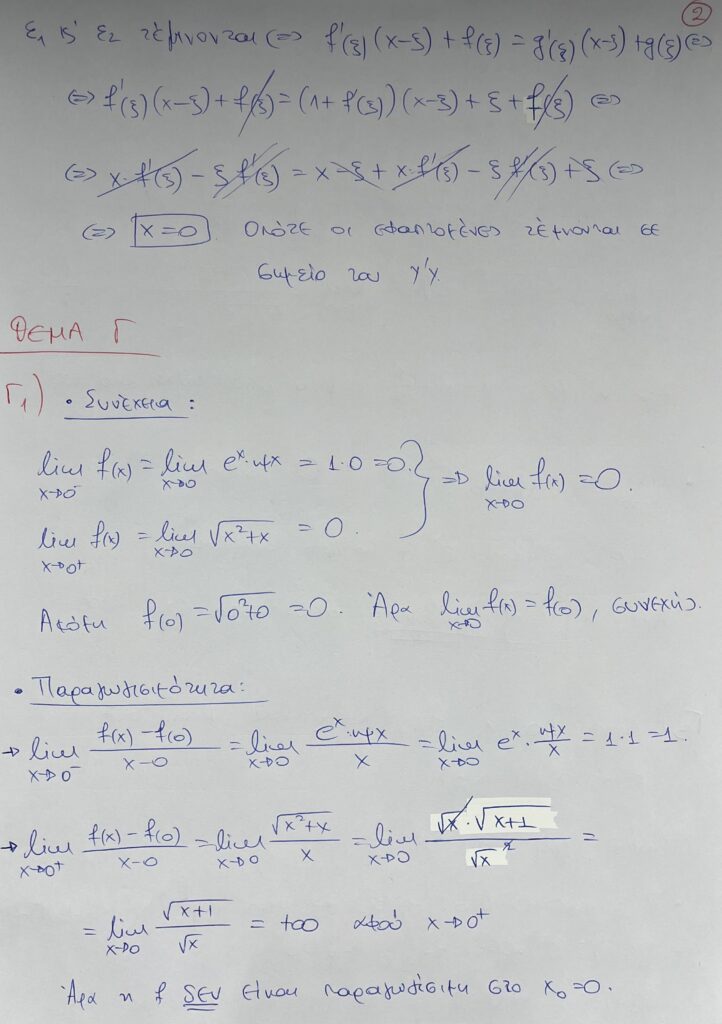 2
ε₁ κ' ε₂ τέμνονται (=) f'(ξ)(x-ξ) + f(ξ) = g'(ξ)(x-ξ) + g(ξ) (=)
(=) f'(ξ)(x-ξ) + f(ξ) = (1+f'(ξ))(x-ξ) + ξ + f(ξ) (=)
(=) x·f'(ξ) - ξ f'(ξ) = x - ξ + x·f'(ξ) - ξ f'(ξ) + ξ (=)
(=) x=0. Οπότε οι εφαπτομένες τέμνονται σε
σημείο του y'y.
ΘΕΜΑ Γ
Γ₁) • Συνέχεια :
lim x→0⁻ f(x) = lim x→0 eˣ·ημx = 1·0 = 0. } ⇒ lim x→0 f(x) = 0.
lim x→0⁺ f(x) = lim x→0 √(x²+x) = 0.
Ακόμη f(0) = √(0²+0) = 0. Άρα lim x→0 f(x) = f(0), συνεχής.
• Παραγωγισιμότητα:
→ lim x→0⁻ (f(x)-f(0))/(x-0) = lim x→0 (eˣ·ημx)/x = lim x→0 eˣ·(ημx)/x = 1·1 = 1.
→ lim x→0⁺ (f(x)-f(0))/(x-0) = lim x→0 √(x²+x)/x = lim x→0 (√x·√(x+1))/√x² =
= lim x→0 √(x+1)/√x = +∞ αφού x→0⁺
Άρα η f ΔΕΝ είναι παραγωγίσιμη στο x₀=0.